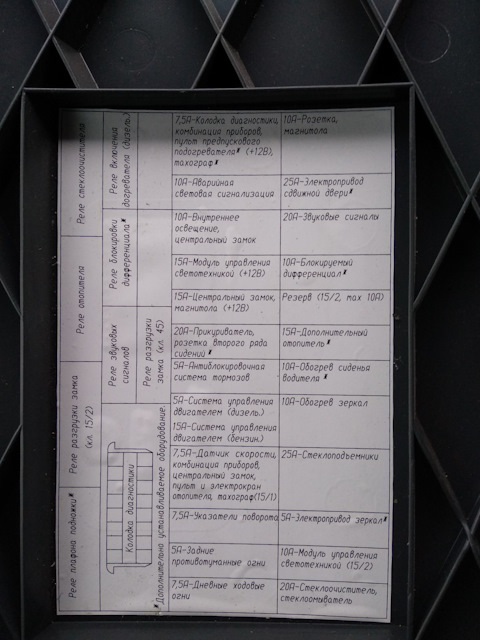 7,5А-Колодка диагностики,
комбинация приборов,
пульт предпускового
подогревателя* (+12В),
тахограф*
10А-Розетка,
магнитола
10А-Аварийная
световая сигнализация
25А-Электропривод
сдвижной двери*
10А-Внутреннее
освещение,
центральный замок
20А-Звуковые сигналы
15А-Модуль управления
светотехникой (+12В)
10А-Блокируемый
дифференциал*
15А-Центральный замок,
магнитола (+12В)
Резерв (15/2, max 10А)
20А-Прикуриватель,
розетка второго ряда
сидений*
15А-Дополнительный
отопитель*
5А-Антиблокировочная
система тормозов
10А-Обогрев сиденья
водителя*
5А-Система управления
двигателем (дизель)
15А-Система управления
двигателем (бензин.)
10А-Обогрев зеркал
7,5А-Датчик скорости,
комбинация приборов,
центральный замок,
пульт и электрокран
отопителя, тахограф(15/1)
25А-Стеклоподъемники
7,5А-Указатели поворота
5А-Электропривод зеркал*
5А-Задние
противотуманные огни
10А-Модуль управления
светотехникой (15/2)
7,5А-Дневные ходовые
огни
20А-Стеклоочиститель,
стеклоомыватель
Реле плафона подножки*
Реле разгрузки замка
(кл. 15/2)
Реле отопителя
Реле стеклоочистителя
Колодка диагностики
Реле звуковых
сигналов
Реле блокировки
дифференциала*
Реле включения
догревателя (дизель)
Реле разгрузки
замка (кл. 45)
*Дополнительно устанавливаемое оборудование.